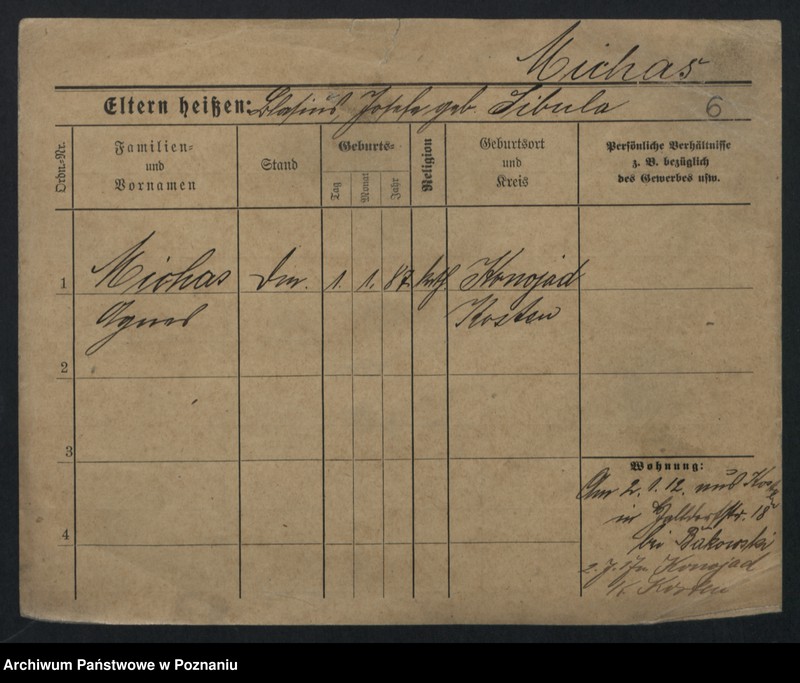 Michas
Eltern heißen: Blasius, Josefa geb. Sibula
6
Ordn.-Nr.
Familien-
und
Vornamen
Stand
Geburts-
Tag
Monat
Jahr
Religion
Geburtsort
und
Kreis
Persönliche Verhältnisse
z. B. bezüglich
des Gewerbes usw.
1 Michas 1. 1. 87. kath. Konojad
Agnes Kosten
2
3
4
Wohnung:
Am 2. 1. 12. aus
in 18
bei Bąkowski
Konojad
Kosten
Archiwum Państwowe w Poznaniu